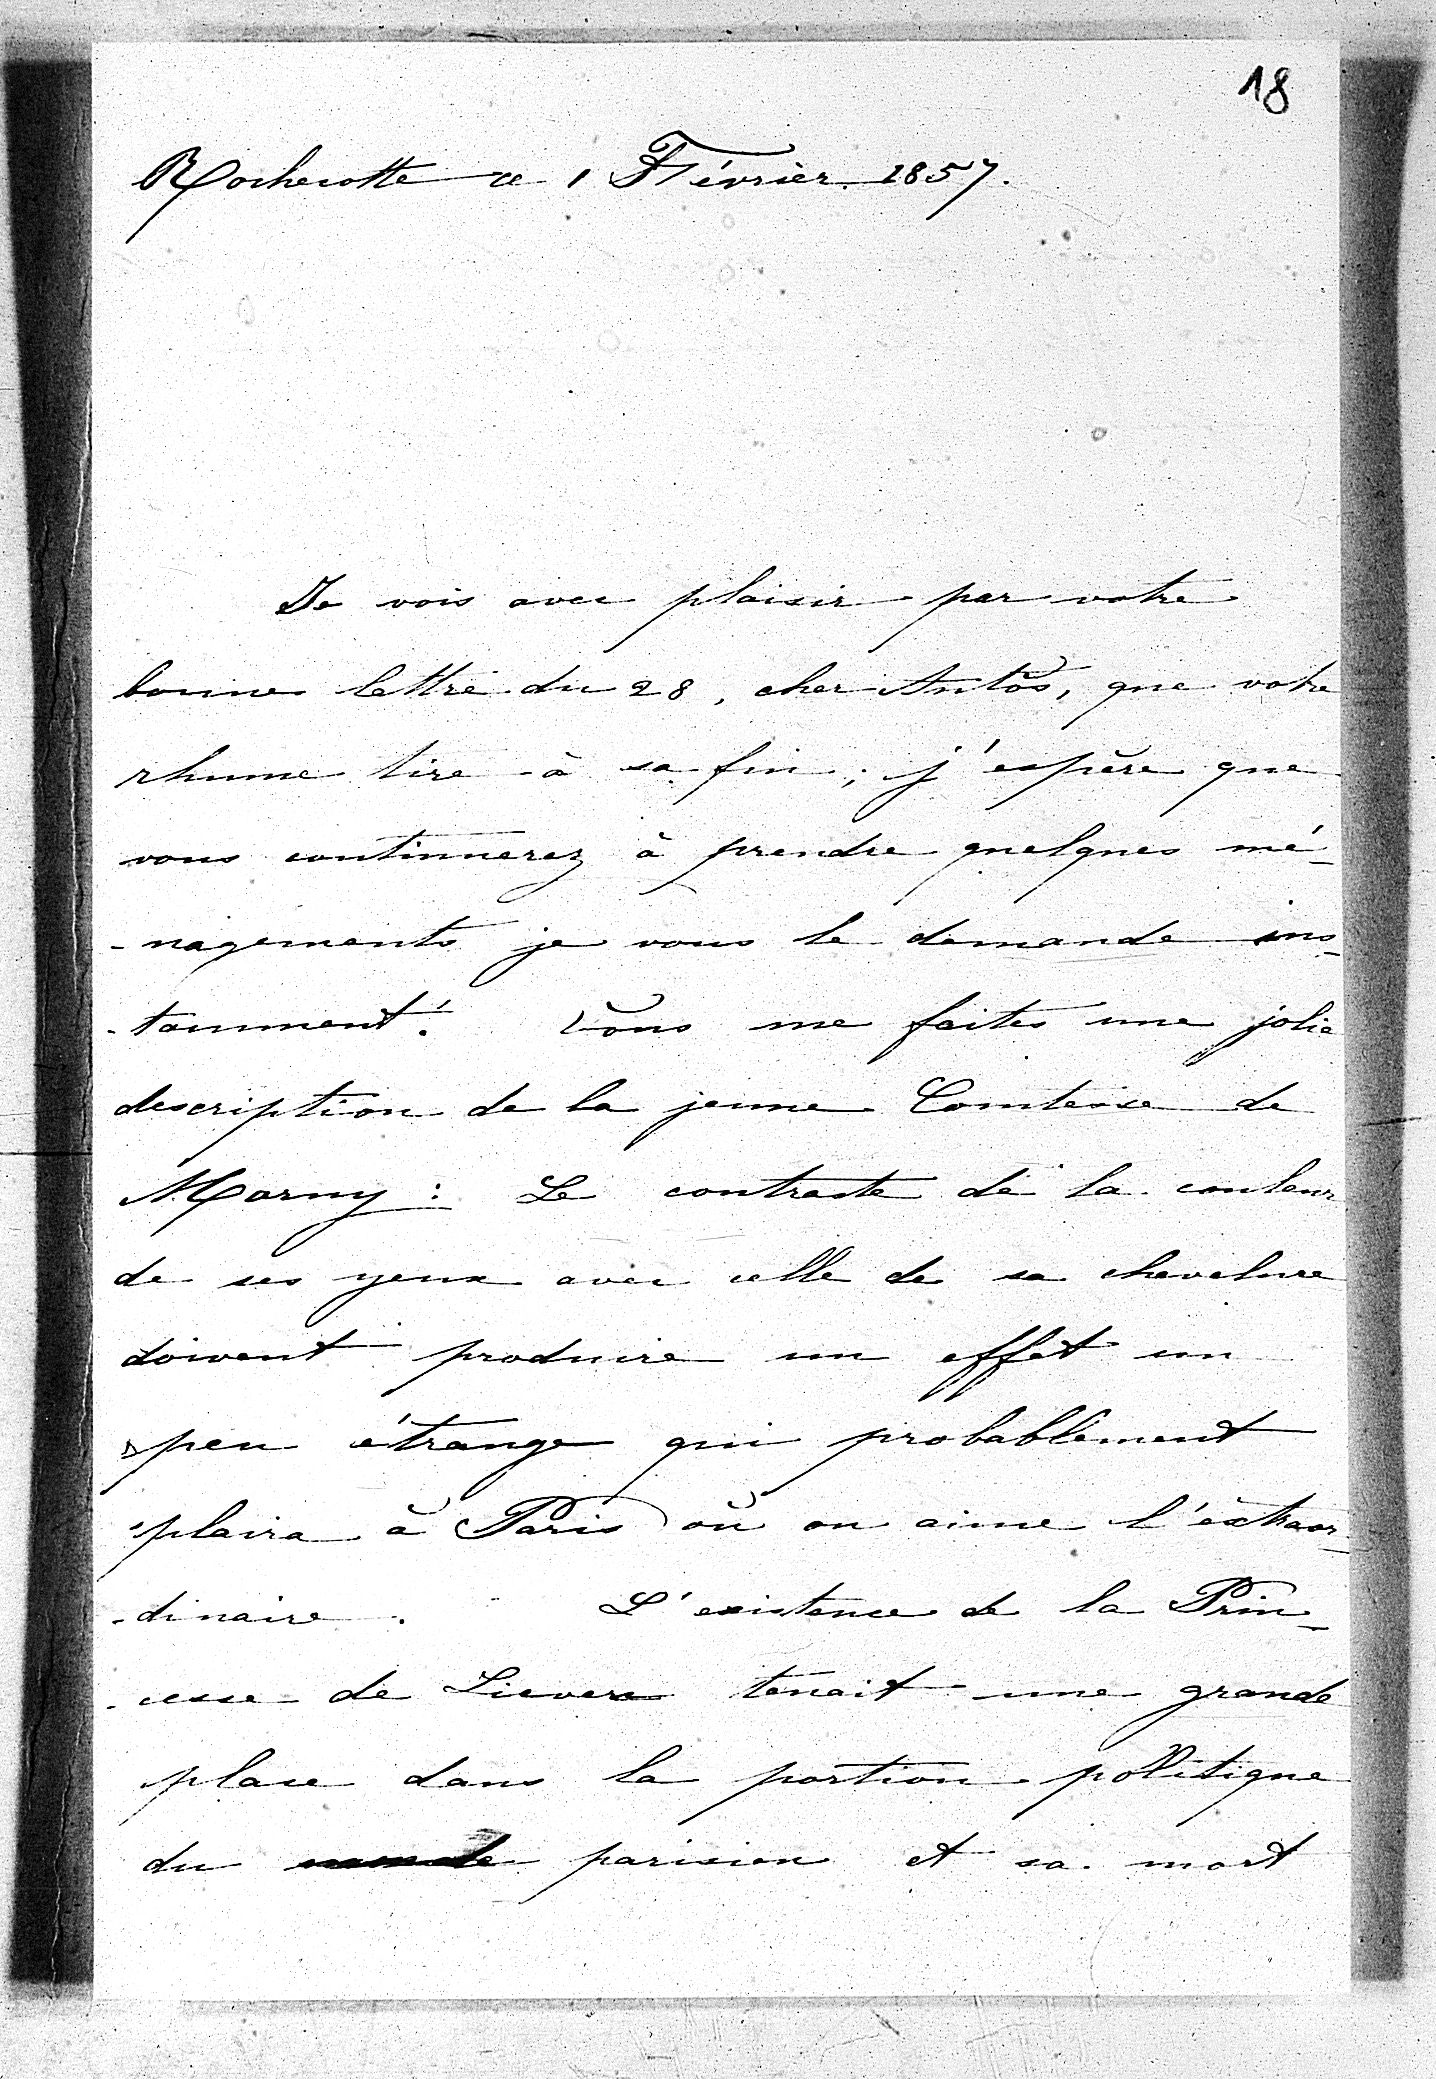 18
Rochecotte ce 1 Février 1857.
Je vois avec plaisir par votre
bonne lettre du 28, cher Antoś, que votre
rhume tire à sa fin; j'espère que
vous continuerez à prendre quelques mé-
-nagements je vous le demande ins-
-tamment! Vous me faites une jolie
description de la jeune Comtesse de
Morny: Le contraste de la couleur
de ses yeux avec celle de sa chevelure
doivent produire un effet un
peu étrange qui probablement
plaira à Paris où on aime l'extraor-
-dinaire. L'existence de la Prin-
-cesse de Lieven tenait une grande
place dans la portion politique
du monde parisien et sa mort